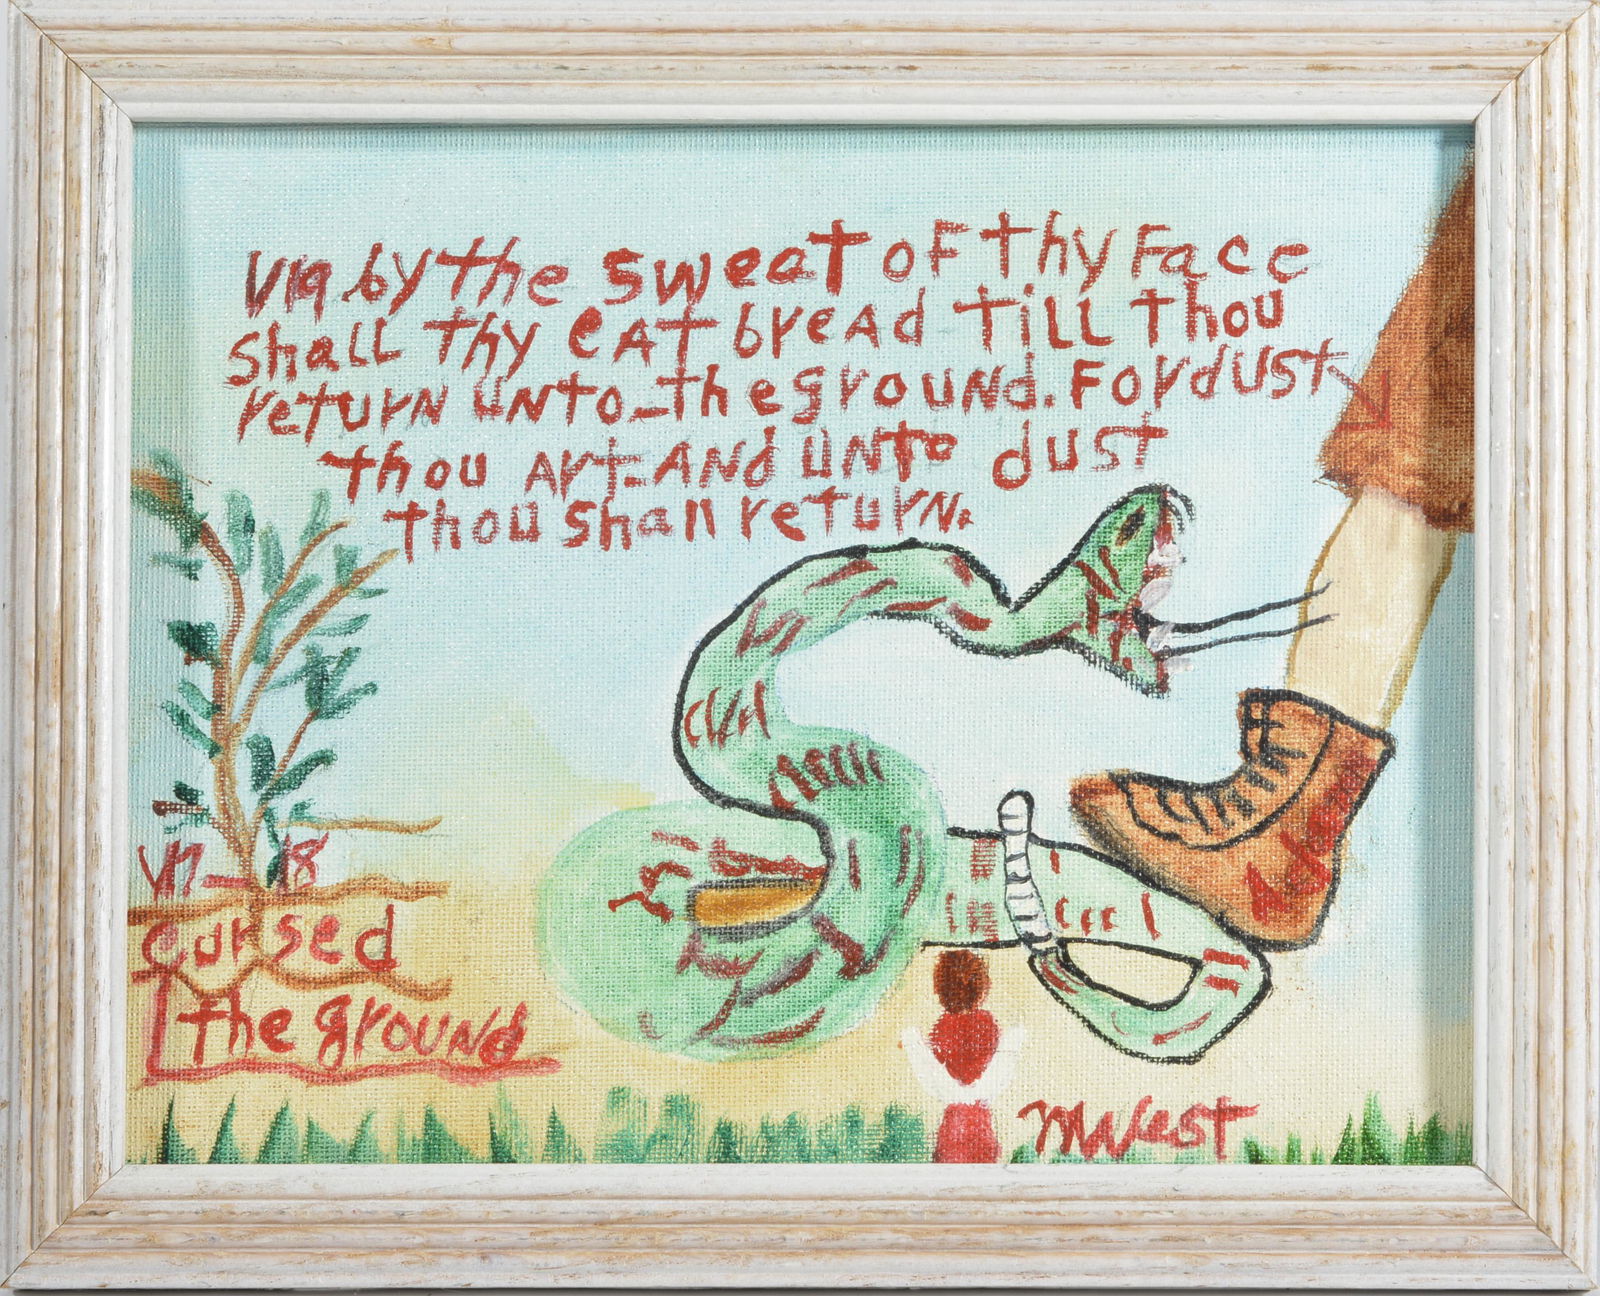 V19 by the sweat of thy face
shall thy eat bread till thou
return unto the ground. For dust
thou art and unto dust
thou shall return.
V17-18
cursed
the ground
MWest